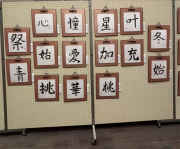 心 憧 星 叶
祭 始 愛 加 充 冬
青 挑 華 桃 始